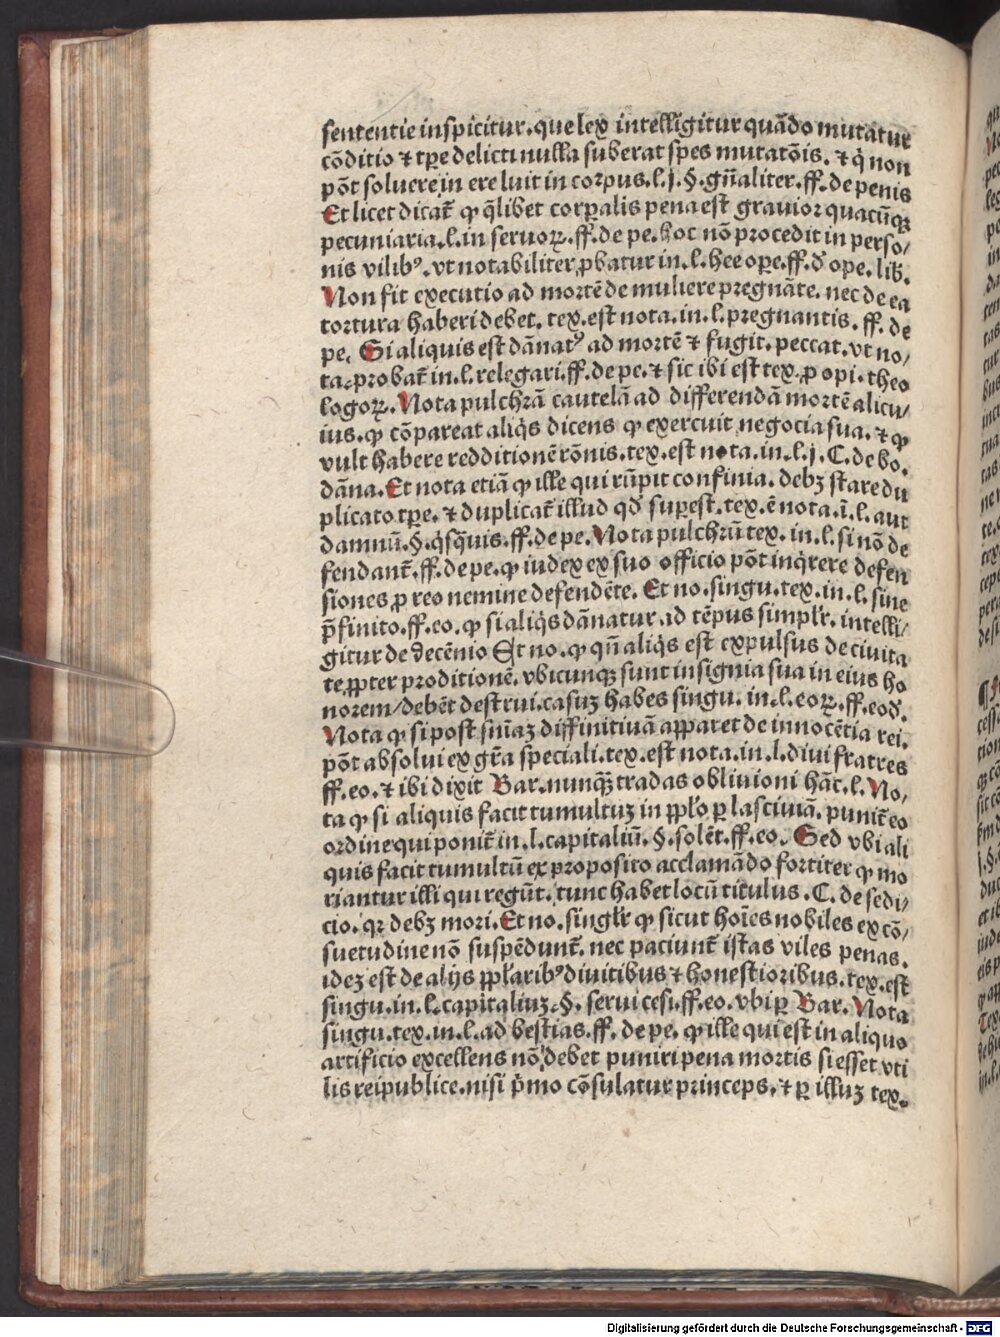 sententie inspicitur. que lex intelligitur quãdo mutatur
cõditio ⁊ tꝑe delicti nulla suberat spes mutatõis. ⁊ q̇ non
põt soluere in ere luit in corpus. l. j. §. gñaliter. ff. de penis
Et licet dicat̃ ꝙ q̃libet corꝑalis pena est grauior quacũqꝫ
pecuniaria. l. in seruoꝝ. ff. de pe. hoc nõ procedit in perso/
nis vilibꝰ. vt notabiliter ꝓbatur in. l. hec oꝑe. ff. d̕ ope. lib̕.
Non fit executio ad mortẽ de muliere pregnãte. nec de ea
tortura haberi debet. tex. est nota. in. l. pregnantis. ff. de
pe. Si aliquis est dãnatꝰ ad mortẽ ⁊ fugit. peccat. vt no/
ta. probat̃ in. l. relegari. ff. de pe. ⁊ sic ibi est tex. ꝓ opi. theo
logoꝝ. Nota pulchrã cautelã ad differendã mortẽ alicu/
ius. ꝙ cõpareat aliq̇s dicens ꝙ exercuit negocia sua. ⁊ ꝙ
vult habere redditionẽ rõnis. tex. est nota. in. l. j. C. de bo.
dãna. Et nota etiã ꝙ ille qui rũpit confinia. debꝫ stare du
plicato tꝑe. ⁊ duplicat̃ illud qd̕ suꝑest. tex. ẽ nota. ĩ. l. aut
damnũ. §. q̇sq̃uis. ff. de pe. Nota pulchrũ tex. in. l. si nõ de
fendant̃. ff. de pe. ꝙ iudex ex suo officio põt inq̇rere defen
siones ꝓ reo nemine defendẽte. Et no. singu. tex. in. l. sine
p̃finito. ff. eo. ꝙ si aliq̇s dãnatur ad tẽpus simplr̃. intelli/
gitur de decẽnio Et no. ꝙ qñ aliq̇s est expulsus de ciuita
te ꝓpter proditionẽ. vbicunqꝫ sunt insignia sua in eius ho
norem/debẽt destrui. casuꝫ habes singu. in. l. eoꝝ. ff. eod̕.
Nota ꝙ si post sñiaꝫ diffinitiuã apparet de innocẽtia rei.
põt absolui ex gr̃a speciali. tex. est nota. in. l. diui fratres
ff. eo. ⁊ ibi dixit Bar. nunqꝫ̃ tradas obliuioni hãc. l. No/
ta ꝙ si aliquis facit tumultuꝫ in pplo ꝑ lasciuiã. punit̃ eo
ordine qui ponit̃ in. l. capitaliũ. §. solẽt. ff. eo. Sed vbi ali
quis facit tumultũ ex proposito acclamãdo fortiter ꝙ mo
riantur illi qui regũt. tunc habet locũ titulus. C. de sedi/
cio. qꝛ debꝫ mori. Et no. singlr̃ ꝙ sicut hoĩes nobiles ex cõ/
suetudine nõ suspẽdunt̃. nec paciunt̃ istas viles penas.
ideꝫ est de alijs pplaribꝰ diuitibus ⁊ honestioribus. tex. est
singu. in. l. capitaliuꝫ. §. serui cesi. ff. eo. vbi ꝑ Bar. Nota
singu. tex. in. l. ad bestias. ff. de pe. ꝙ ille qui est in aliquo
artificio excellens nõ debet puniri pena mortis si esset vti
lis reipublice. nisi p̃mo cõsulatur princeps. ⁊ ꝑ illuꝫ tex.
Digitalisierung gefördert durch die Deutsche Forschungsgemeinschaft - DFG